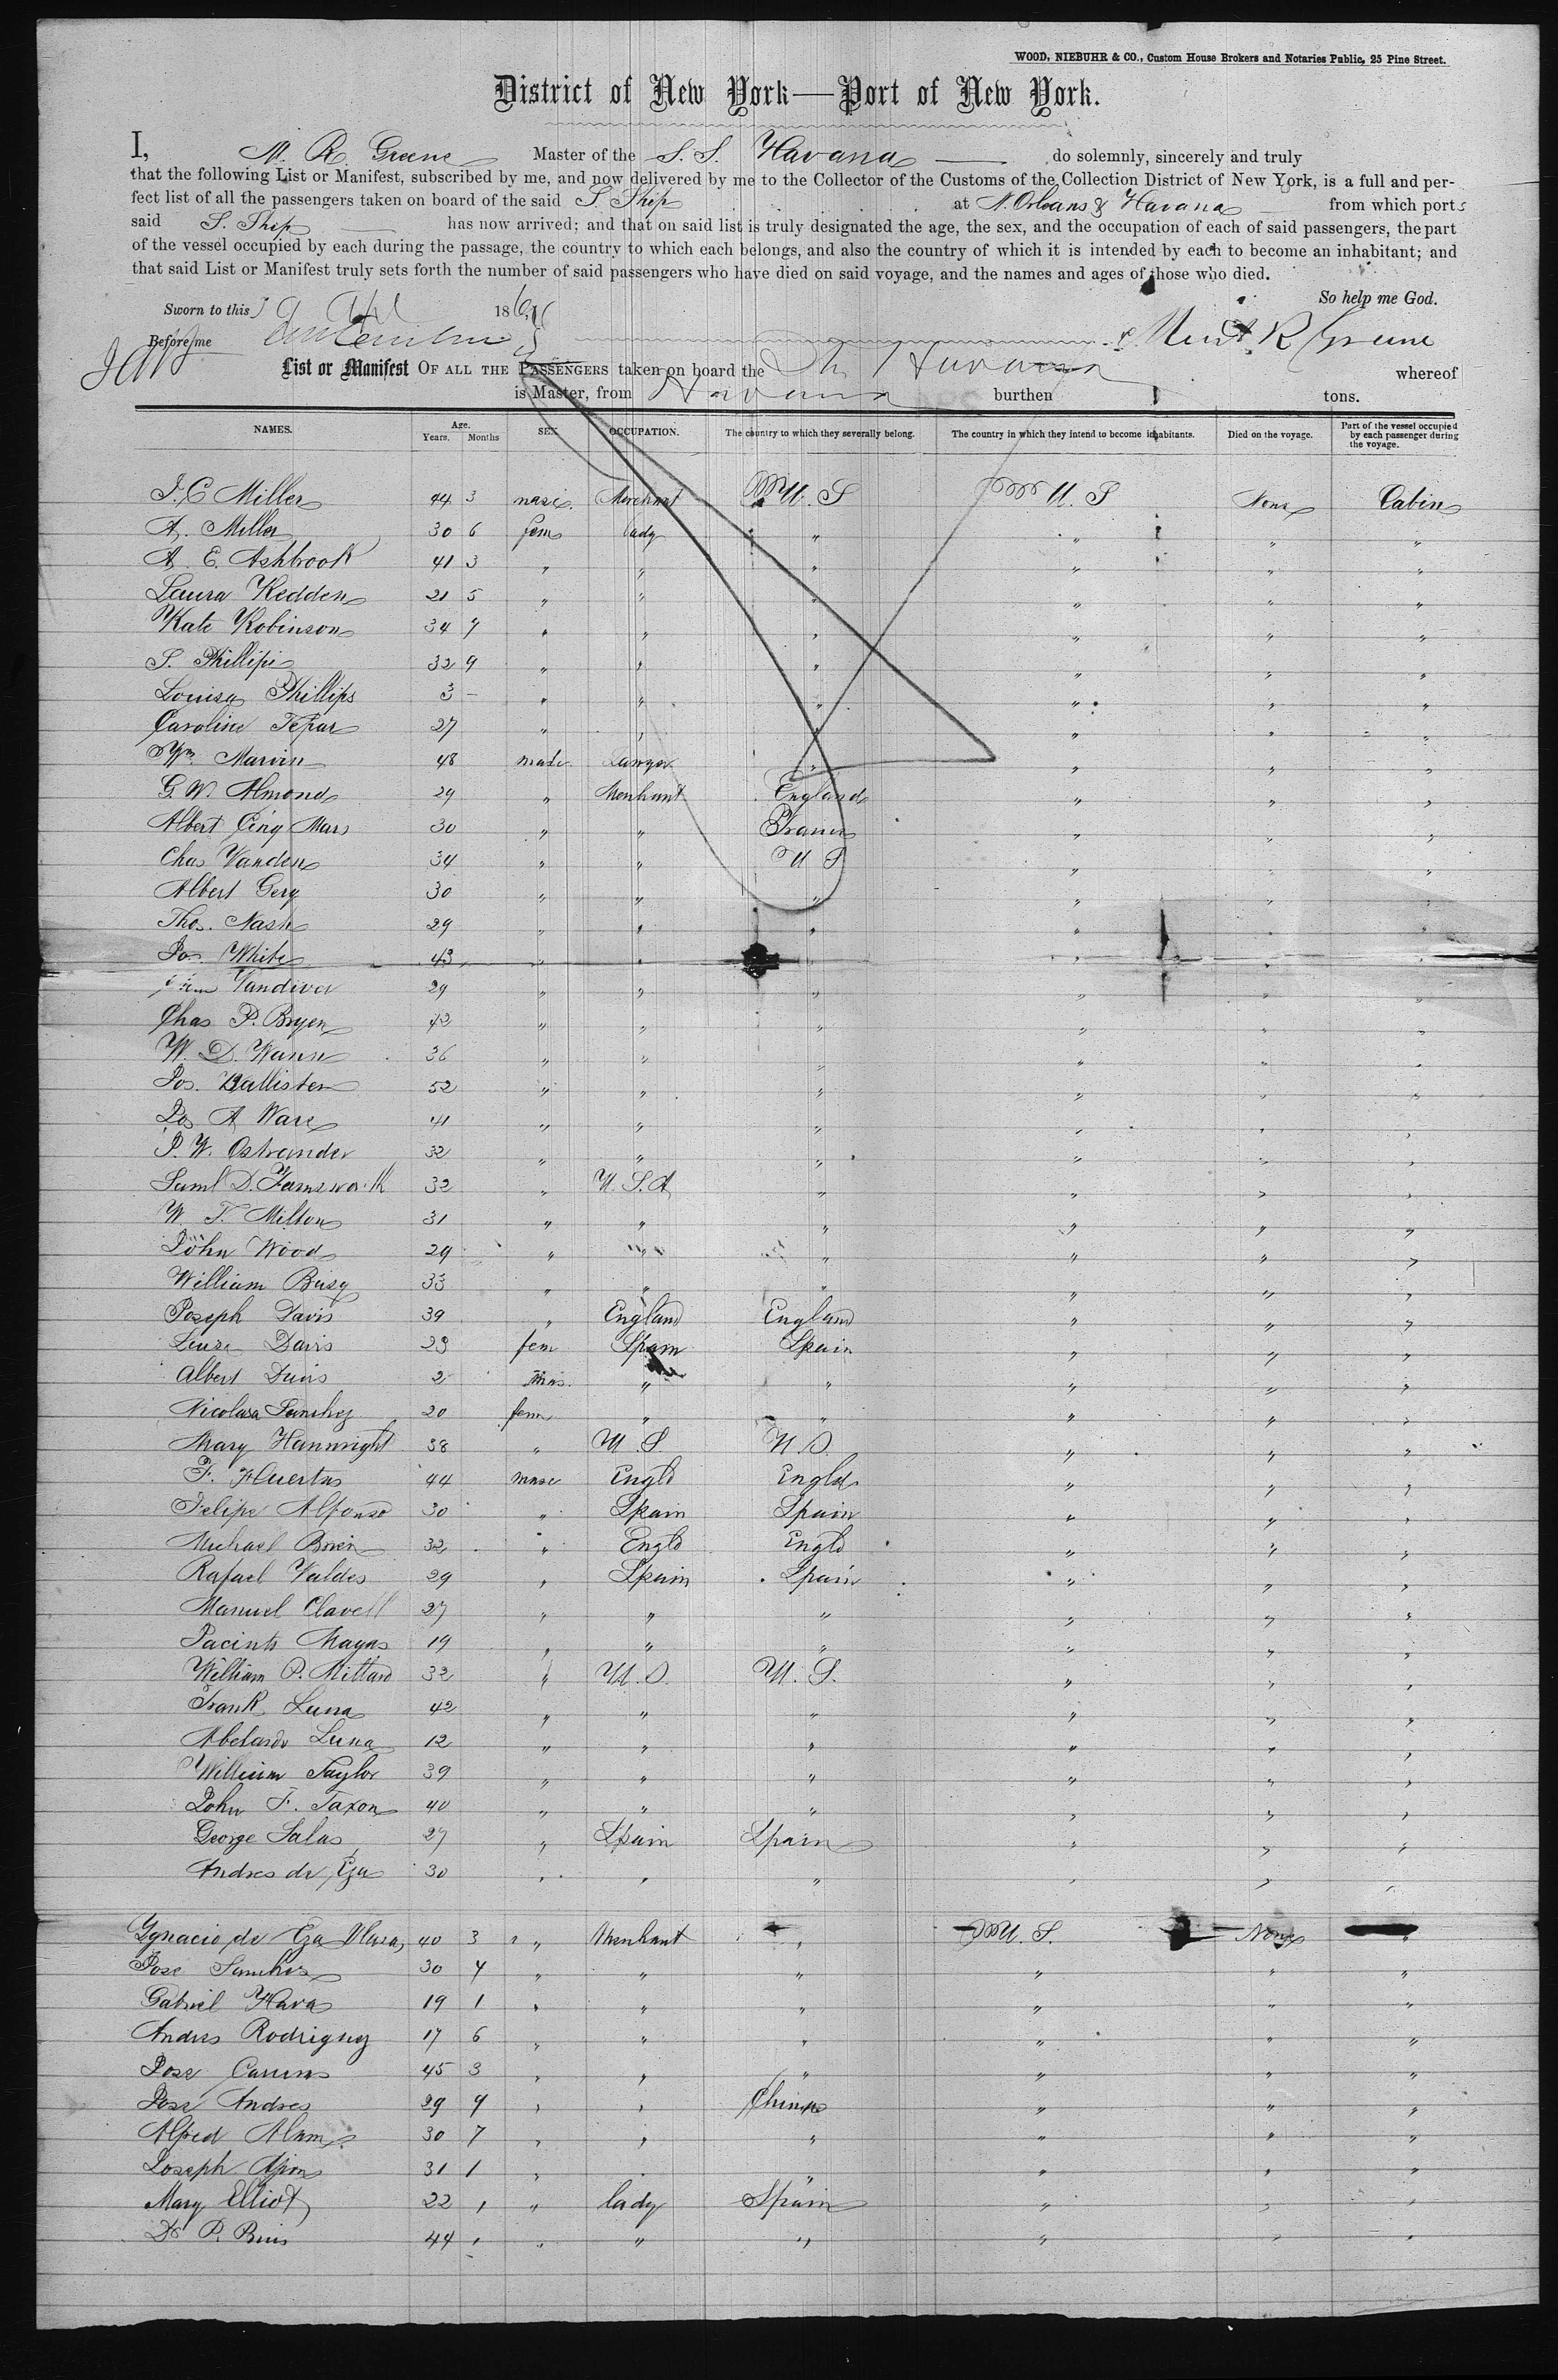 WOOD, NIEBUHR & CO., Custom House Brokers and Notaries Public, 25 Pine Street.
District of New York—Port of New York.
I, M. R. Greene Master of the S. S. Havana do solemnly, sincerely and truly
that the following List or Manifest, subscribed by me, and now delivered by me to the Collector of the Customs of the Collection District of New York, is a full and per-
fect list of all the passengers taken on board of the said S. Ship at N. Orleans & Havana from which ports
said S. Ship has now arrived; and that on said list is truly designated the age, the sex, and the occupation of each of said passengers, the part
of the vessel occupied by each during the passage, the country to which each belongs, and also the country of which it is intended by each to become an inhabitant; and
that said List or Manifest truly sets forth the number of said passengers who have died on said voyage, and the names and ages of those who died.
So help me God.
Sworn to this 186
Before me R Greene
List or Manifest OF ALL THE PASSENGERS taken on board the Havana whereof
is Master, from Havana burthen tons.
NAMES. Age. Years. Months SEX. OCCUPATION. The country to which they severally belong. The country in which they intend to become inhabitants. Died on the voyage. Part of the vessel occupied by each passenger during the voyage.
J. C Miller 44 3 Merchant U. S U. S None Cabin
A. Miller 30 6 fem lady " " " "
A. E. Ashbrook 41 3 " " " " " "
Laura Redden 21 5 " " " " " "
Kate Robinson 34 7 " " " " " "
S. Phillips 32 9 " " " " " "
Louisa Phillips 3 - " " " " " "
Caroline 27 " " " " " "
Wm Marvin 48 male Lawyer " " " "
G. W. Almond 29 " Merchant England " " "
Albert Cinq Mars 30 " " France " " "
Chas Vanden 34 " " U S " " "
Albert Gery 30 " " " " " "
Thos. Nash 29 " " " " " "
Jos. White 43 " " " " " "
Vandiver 29 " " " " " "
Chas P. Bryen 42 " " " " " "
W. D. Wann 36 " " " " " "
Jos. Hallister 52 " " " " " "
Jos A Ware 41 " " " " " "
P. W. Ostrander 32 " " " " " "
Saml D. Farnsworth 32 " U. S. A " " " "
W. T. Milton 31 " " " " " "
John Wood 29 " " " " " "
William Busy 33 " " " " " "
Joseph Davis 39 " England England " " "
Davis 23 fem Spain Spain " " "
Albert Davis 2 mas. " " " " "
Nicolasa Sanchez 20 fem " " " " "
Mary Hannright 38 " U S. U. S. " " "
F. Huertas 44 masc Engld Engld " " "
Felipe Alfonso 30 " Spain Spain " " "
Michael Brien 32 " Engld Engld " " "
Rafael Valdes 29 " Spain Spain " " "
Manuel Clavell 27 " " " " " "
Jacinto Mayas 19 " " " " " "
William P. Mittard 32 " U. S. U. S. " " "
Frank Luna 42 " " " " " "
Abelardo Luna 12 " " " " " "
William Taylor 39 " " " " " "
John F. Taxon 40 " " " " " "
George Salas 27 " Spain Spain " " "
Andres de Eza 30 " " " " " "
Ygnacio de Eza 40 3 " Merchant " U. S. None "
Jose Sanchez 30 4 " " " " " "
Gabriel Hava 19 1 " " " " " "
Andres Rodriguez 17 6 " " " " " "
Jose 45 3 " " " " " "
Jose Andres 29 9 " " China " " "
Alfred Alum 30 7 " " " " " "
Joseph 31 1 " " " " "
Mary Elliot 22 " " lady Spain " " "
P. 44 " " " " " " "